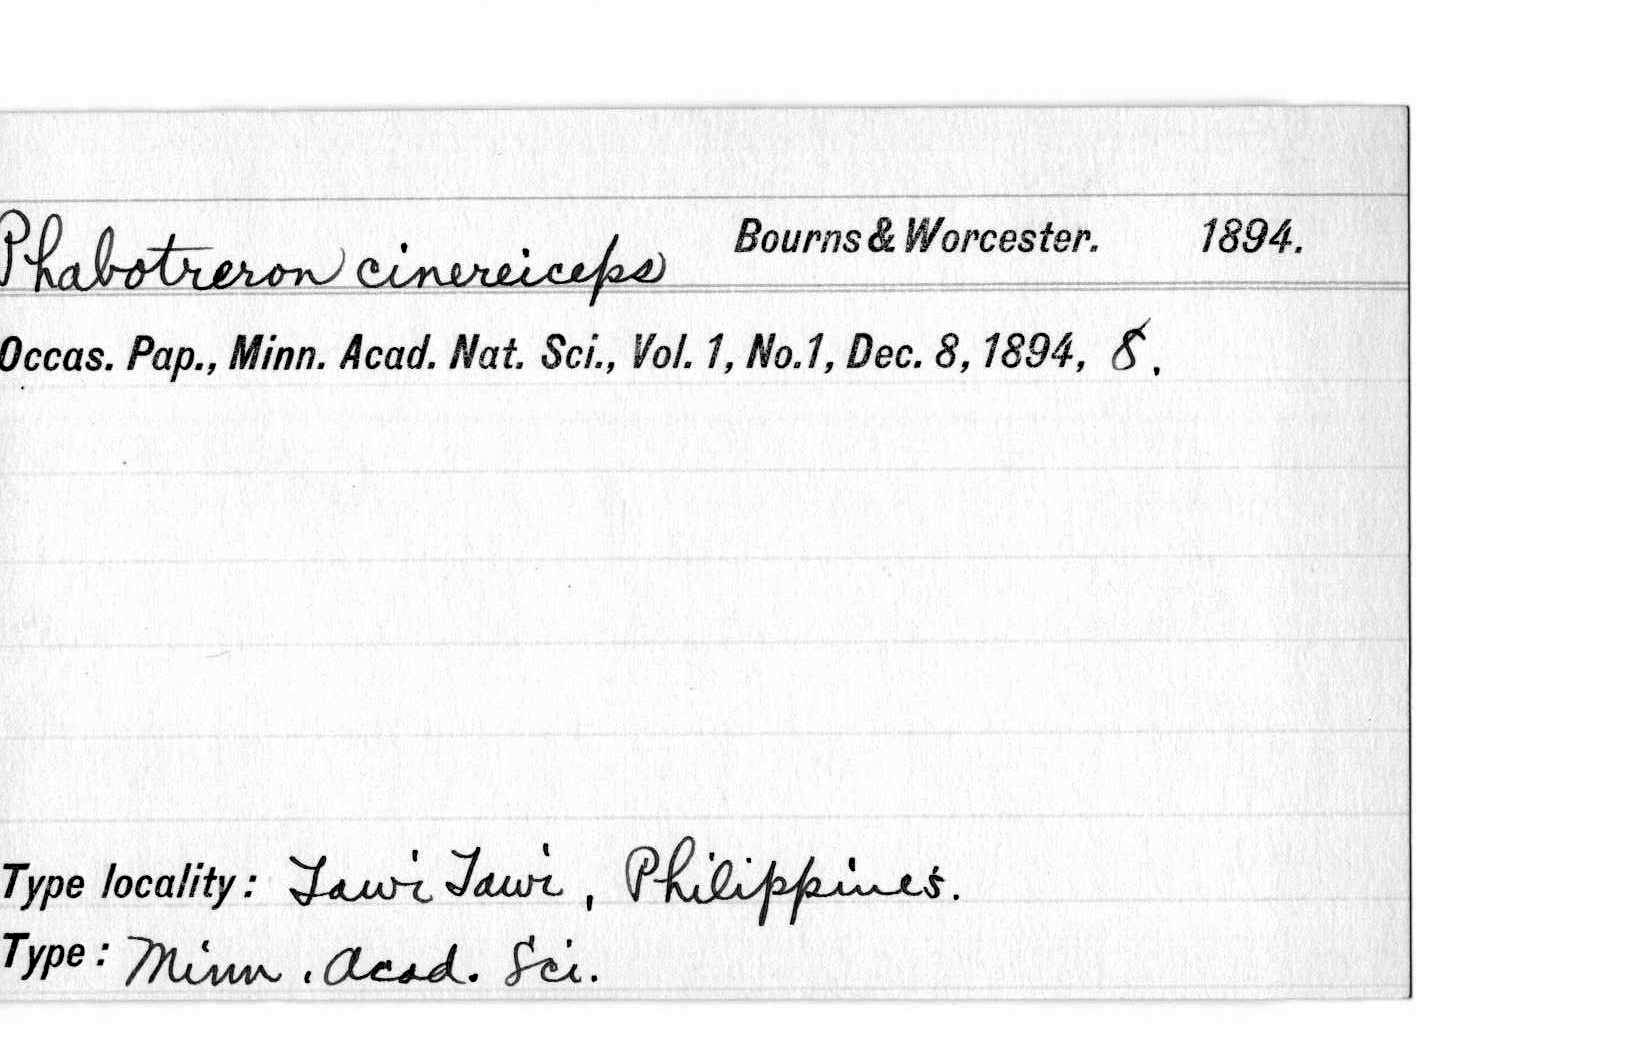 Phabotreron cinereiceps Bourns & Worcester. 1894.
Occas. Pap., Minn. Acad. Nat. Sci., Vol. 1, No. 1, Dec. 8, 1894, 8.
Type locality: Tawi Tawi, Philippines.
Type: Minn. Acad. Sci.